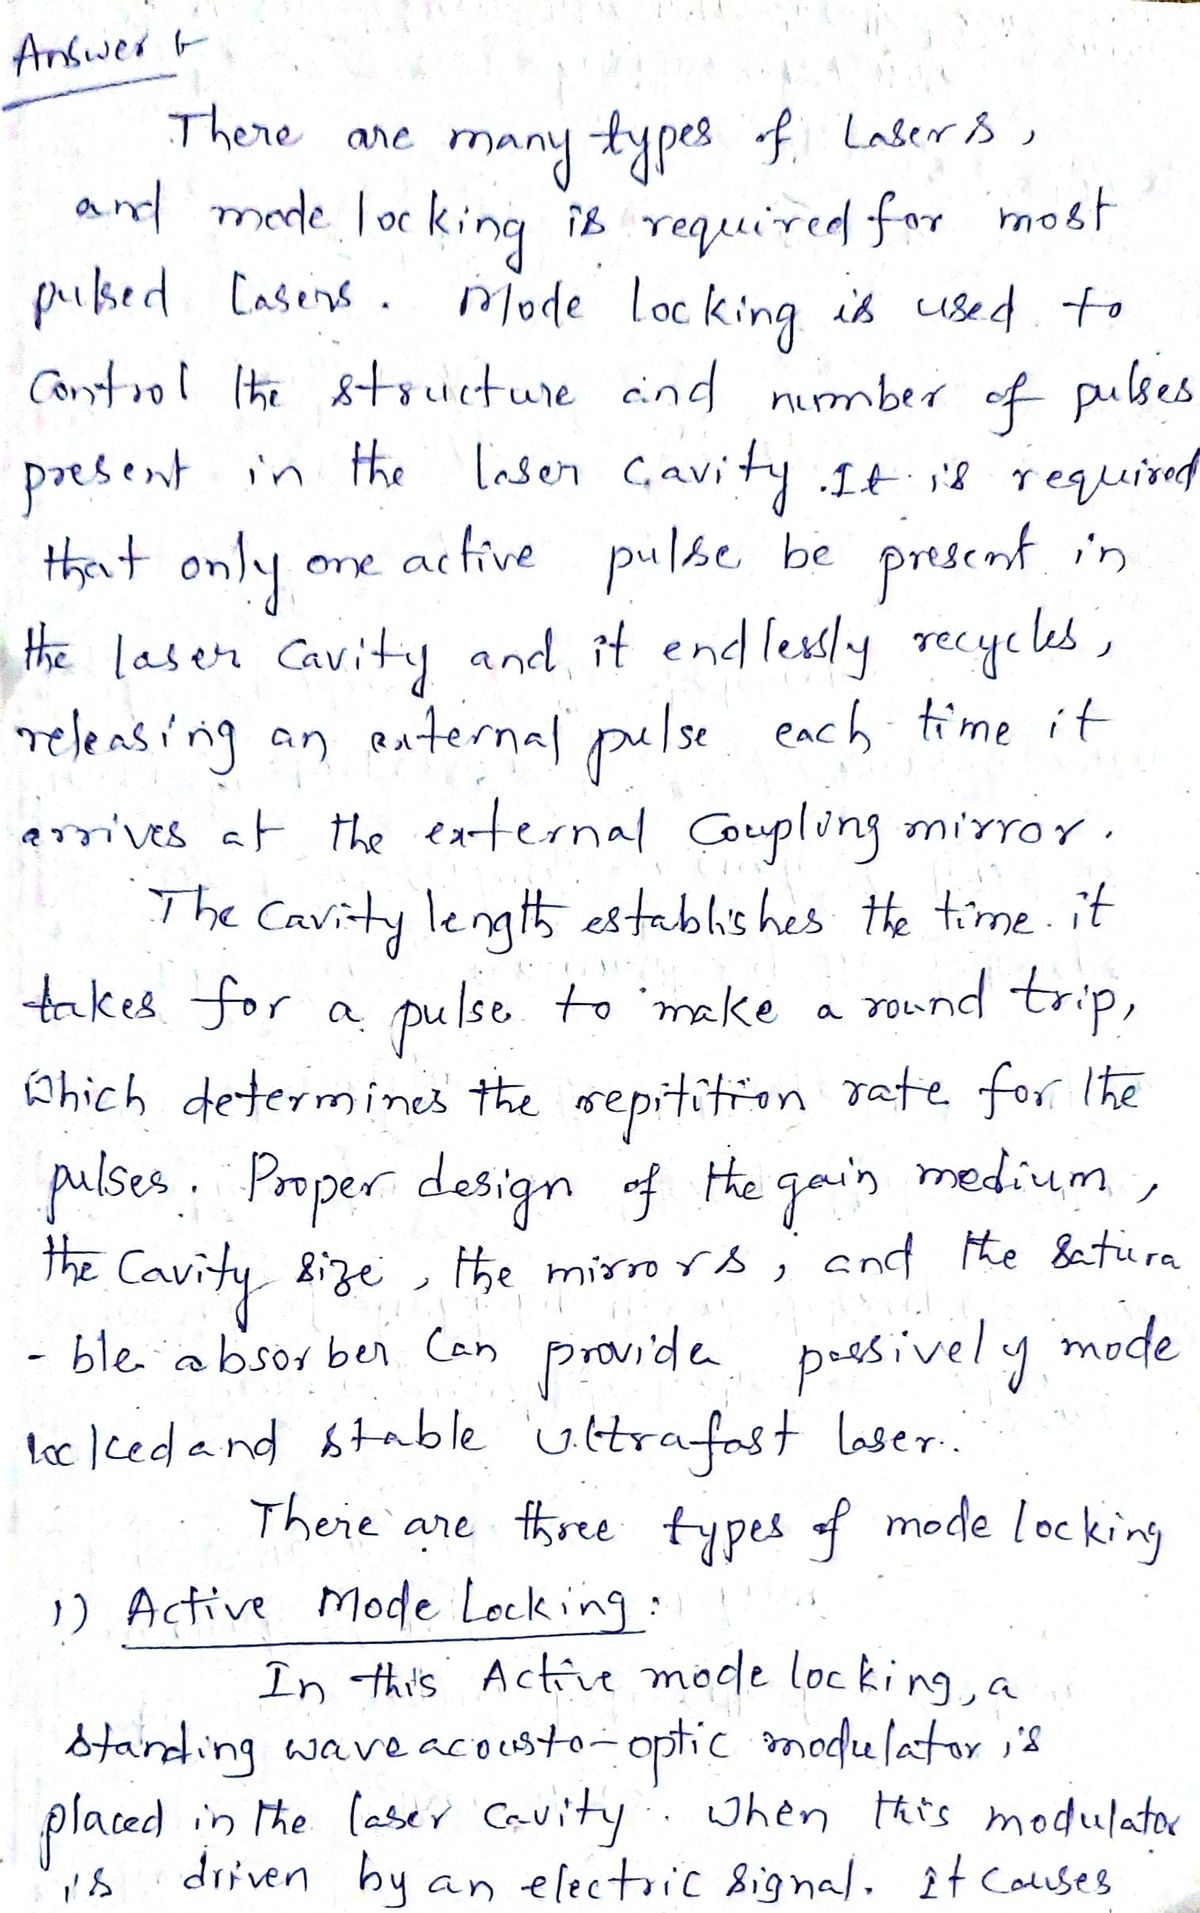 Answer :-
There are many types of Lasers,
and mode locking is required for most
pulsed lasers. Mode locking is used to
Control the structure and number of pulses
present in the laser Cavity. It is required
that only one active pulse be present in
the laser cavity and it endlessly recycles,
releasing an external pulse each time it
arrives at the external Coupling mirror.
The Cavity length establishes the time it
takes for a pulse to make a round trip,
Which determines the repitition rate for the
pulses. Proper design of the gain medium,
the Cavity size, the mirrors, and the Satura
- ble absorber Can provide passively mode
locked and stable ultrafast laser.
There are three types of mode locking
1) Active Mode Locking:
In this Active mode locking, a
standing wave acousto-optic modulator is
placed in the laser cavity. When this modulator
is driven by an electric signal. It Causes